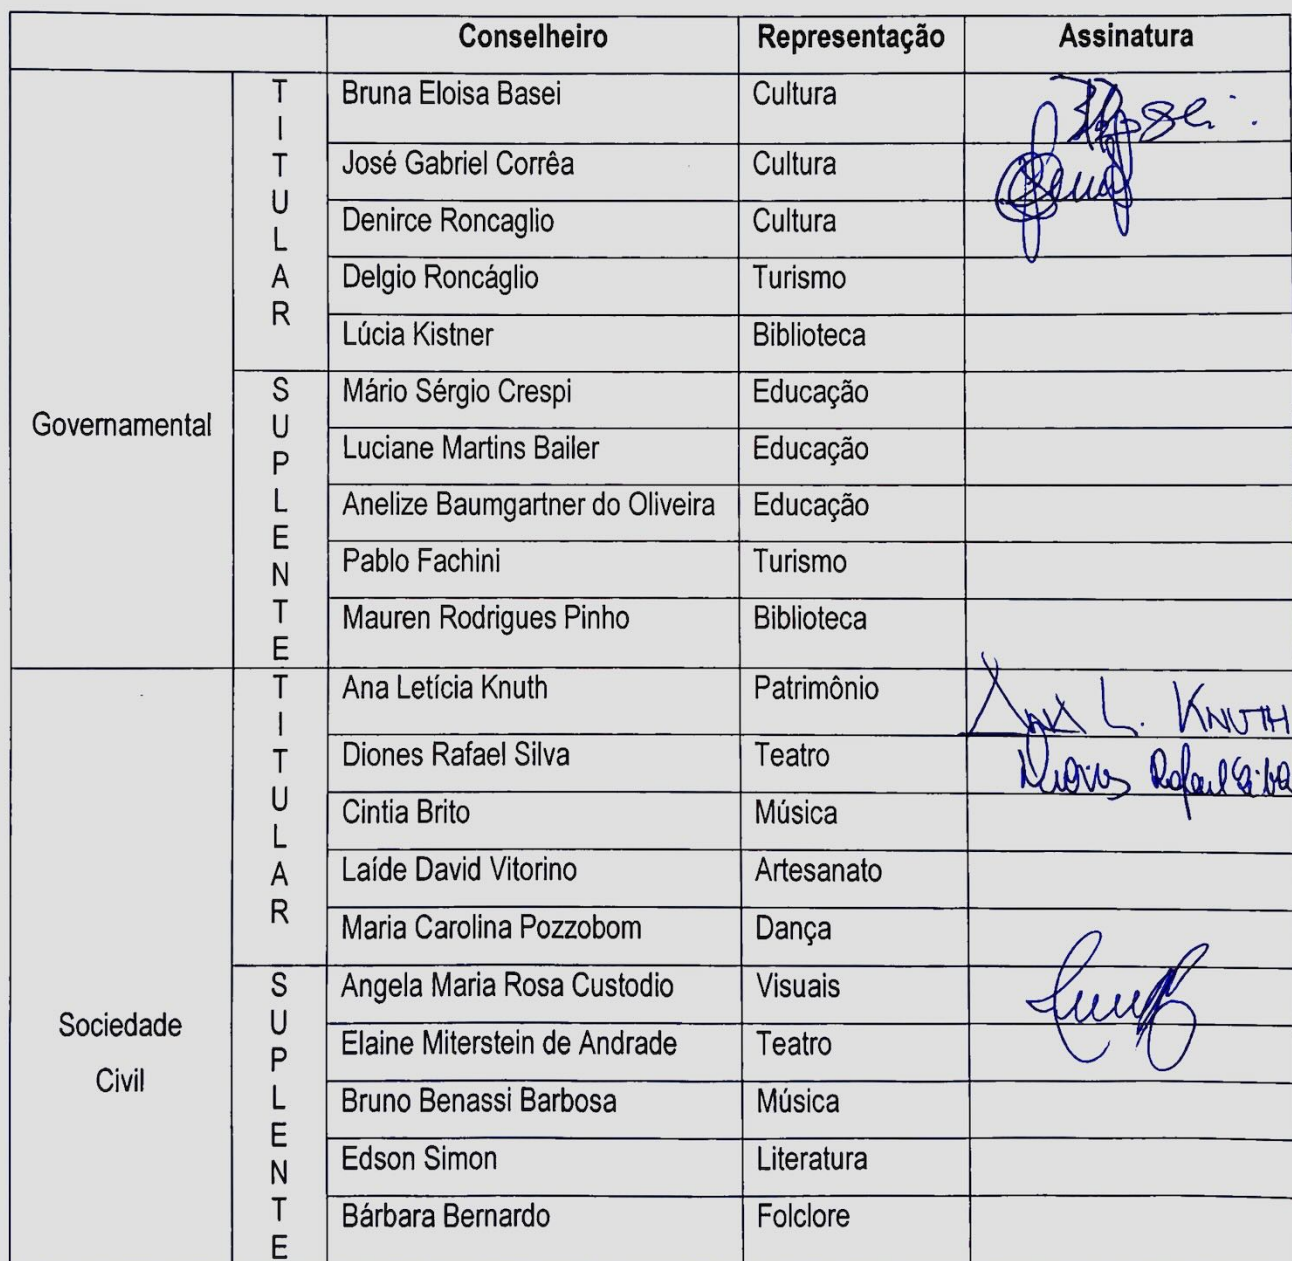 Conselheiro Representação Assinatura
Governamental
TITULAR
Bruna Eloisa Basei Cultura
José Gabriel Corrêa Cultura
Denirce Roncaglio Cultura
Delgio Roncáglio Turismo
Lúcia Kistner Biblioteca
SUPLENTE
Mário Sérgio Crespi Educação
Luciane Martins Bailer Educação
Anelize Baumgartner do Oliveira Educação
Pablo Fachini Turismo
Mauren Rodrigues Pinho Biblioteca
Sociedade
Civil
TITULAR
Ana Letícia Knuth Patrimônio Ana L. KNUTH
Diones Rafael Silva Teatro Diones Rafael Silva
Cintia Brito Música
Laíde David Vitorino Artesanato
Maria Carolina Pozzobom Dança
SUPLENTE
Angela Maria Rosa Custodio Visuais
Elaine Miterstein de Andrade Teatro
Bruno Benassi Barbosa Música
Edson Simon Literatura
Bárbara Bernardo Folclore